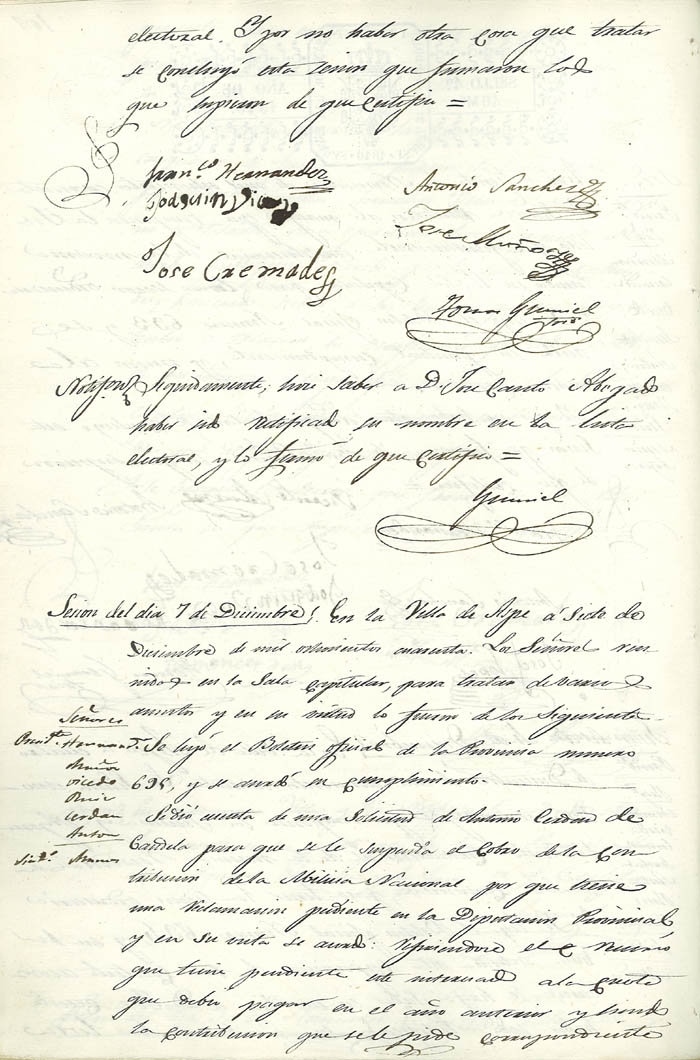 electoral. Y por no haber otra cosa que tratar
se concluyó esta sesion que firmaron los
que supieron de que certifico =
Fran.co Hernandez
Antonio Sanchez
Joaquin
Jose Muños
Jose Cremades
Tomas Gumiel
Seguidamente, hice saber a D. Jose Canto Abogado
haber sido notificado su nombre en la lista
electoral, y lo firmó de que certifico =
Gumiel
Sesion del dia 7 de Diciembre. En la Villa de Aspe á Siete de
Diciembre de mil ochocientos cuarenta. Los Señores reu-
nidos en la Sala capitular, para tratar de varios
asuntos y en su virtud lo fueron de los siguientes
Señores
Presid.te Hernand.z
Muños
Vicedo
Ruiz
Cerdan
Anton
Sind.o
Se leyó el Boletin oficial de la Provincia numero
695, y se acordó su cumplimiento.
Se dió cuenta de una Solicitud de Antonio Cerdan de
Candela para que se le suspenda el Cobro de la Con-
tribucion de la Milicia Nacional por que tiene
una reclamacion pendiente en la Diputacion Provincial
y en su vista se acordó: refiriendose el recurso
que tiene pendiente este interesado a la cuota
que debia pagar en el año anterior y siendo
la contribucion que se le pide correspondiente